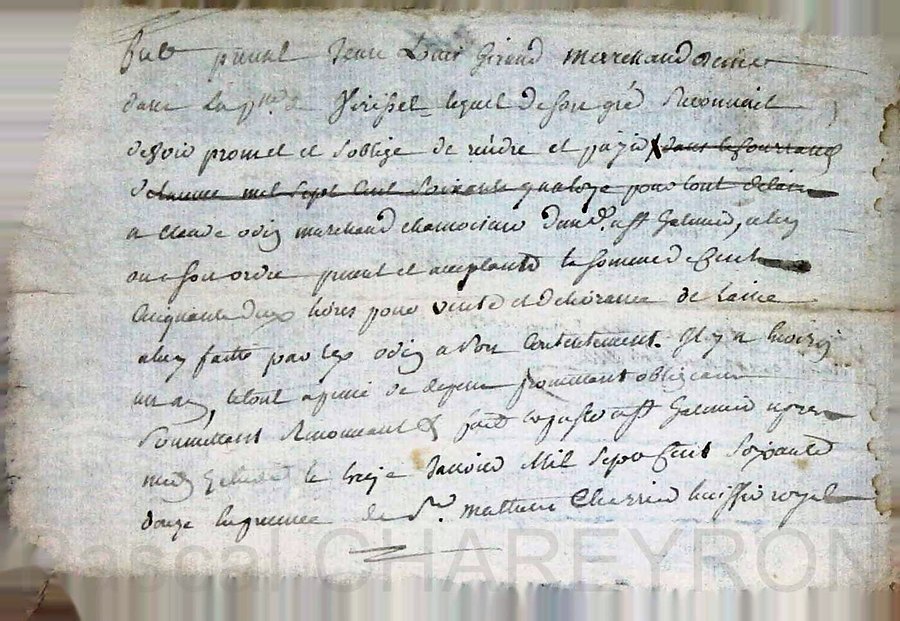 Fut présent Jean Louis Giraud marchand
dans la p^sse de lequel de son gré reconnait
devoir promet et s'oblige de rendre et payer dans le courrant
de l'année mil sept cent soixante quatorze pour tout délai
a Claude odin marchand chamoiseur dud. st Galmier, a luy
ou a son ordre présent et acceptant la somme de Cent
cinquante deux livres pour vente et délivrance de laine
a luy faitte par led odin a son contentement. Il y a
un an, le tout a peine de depens promettant obligeant
soumettant Renonceant & fait et passé a st Galmier
le treize Janvier Mil sept Cent soixante
douze En presence de Sr. mathieu Cherrier huissier royal
Pascal CHAREYRON